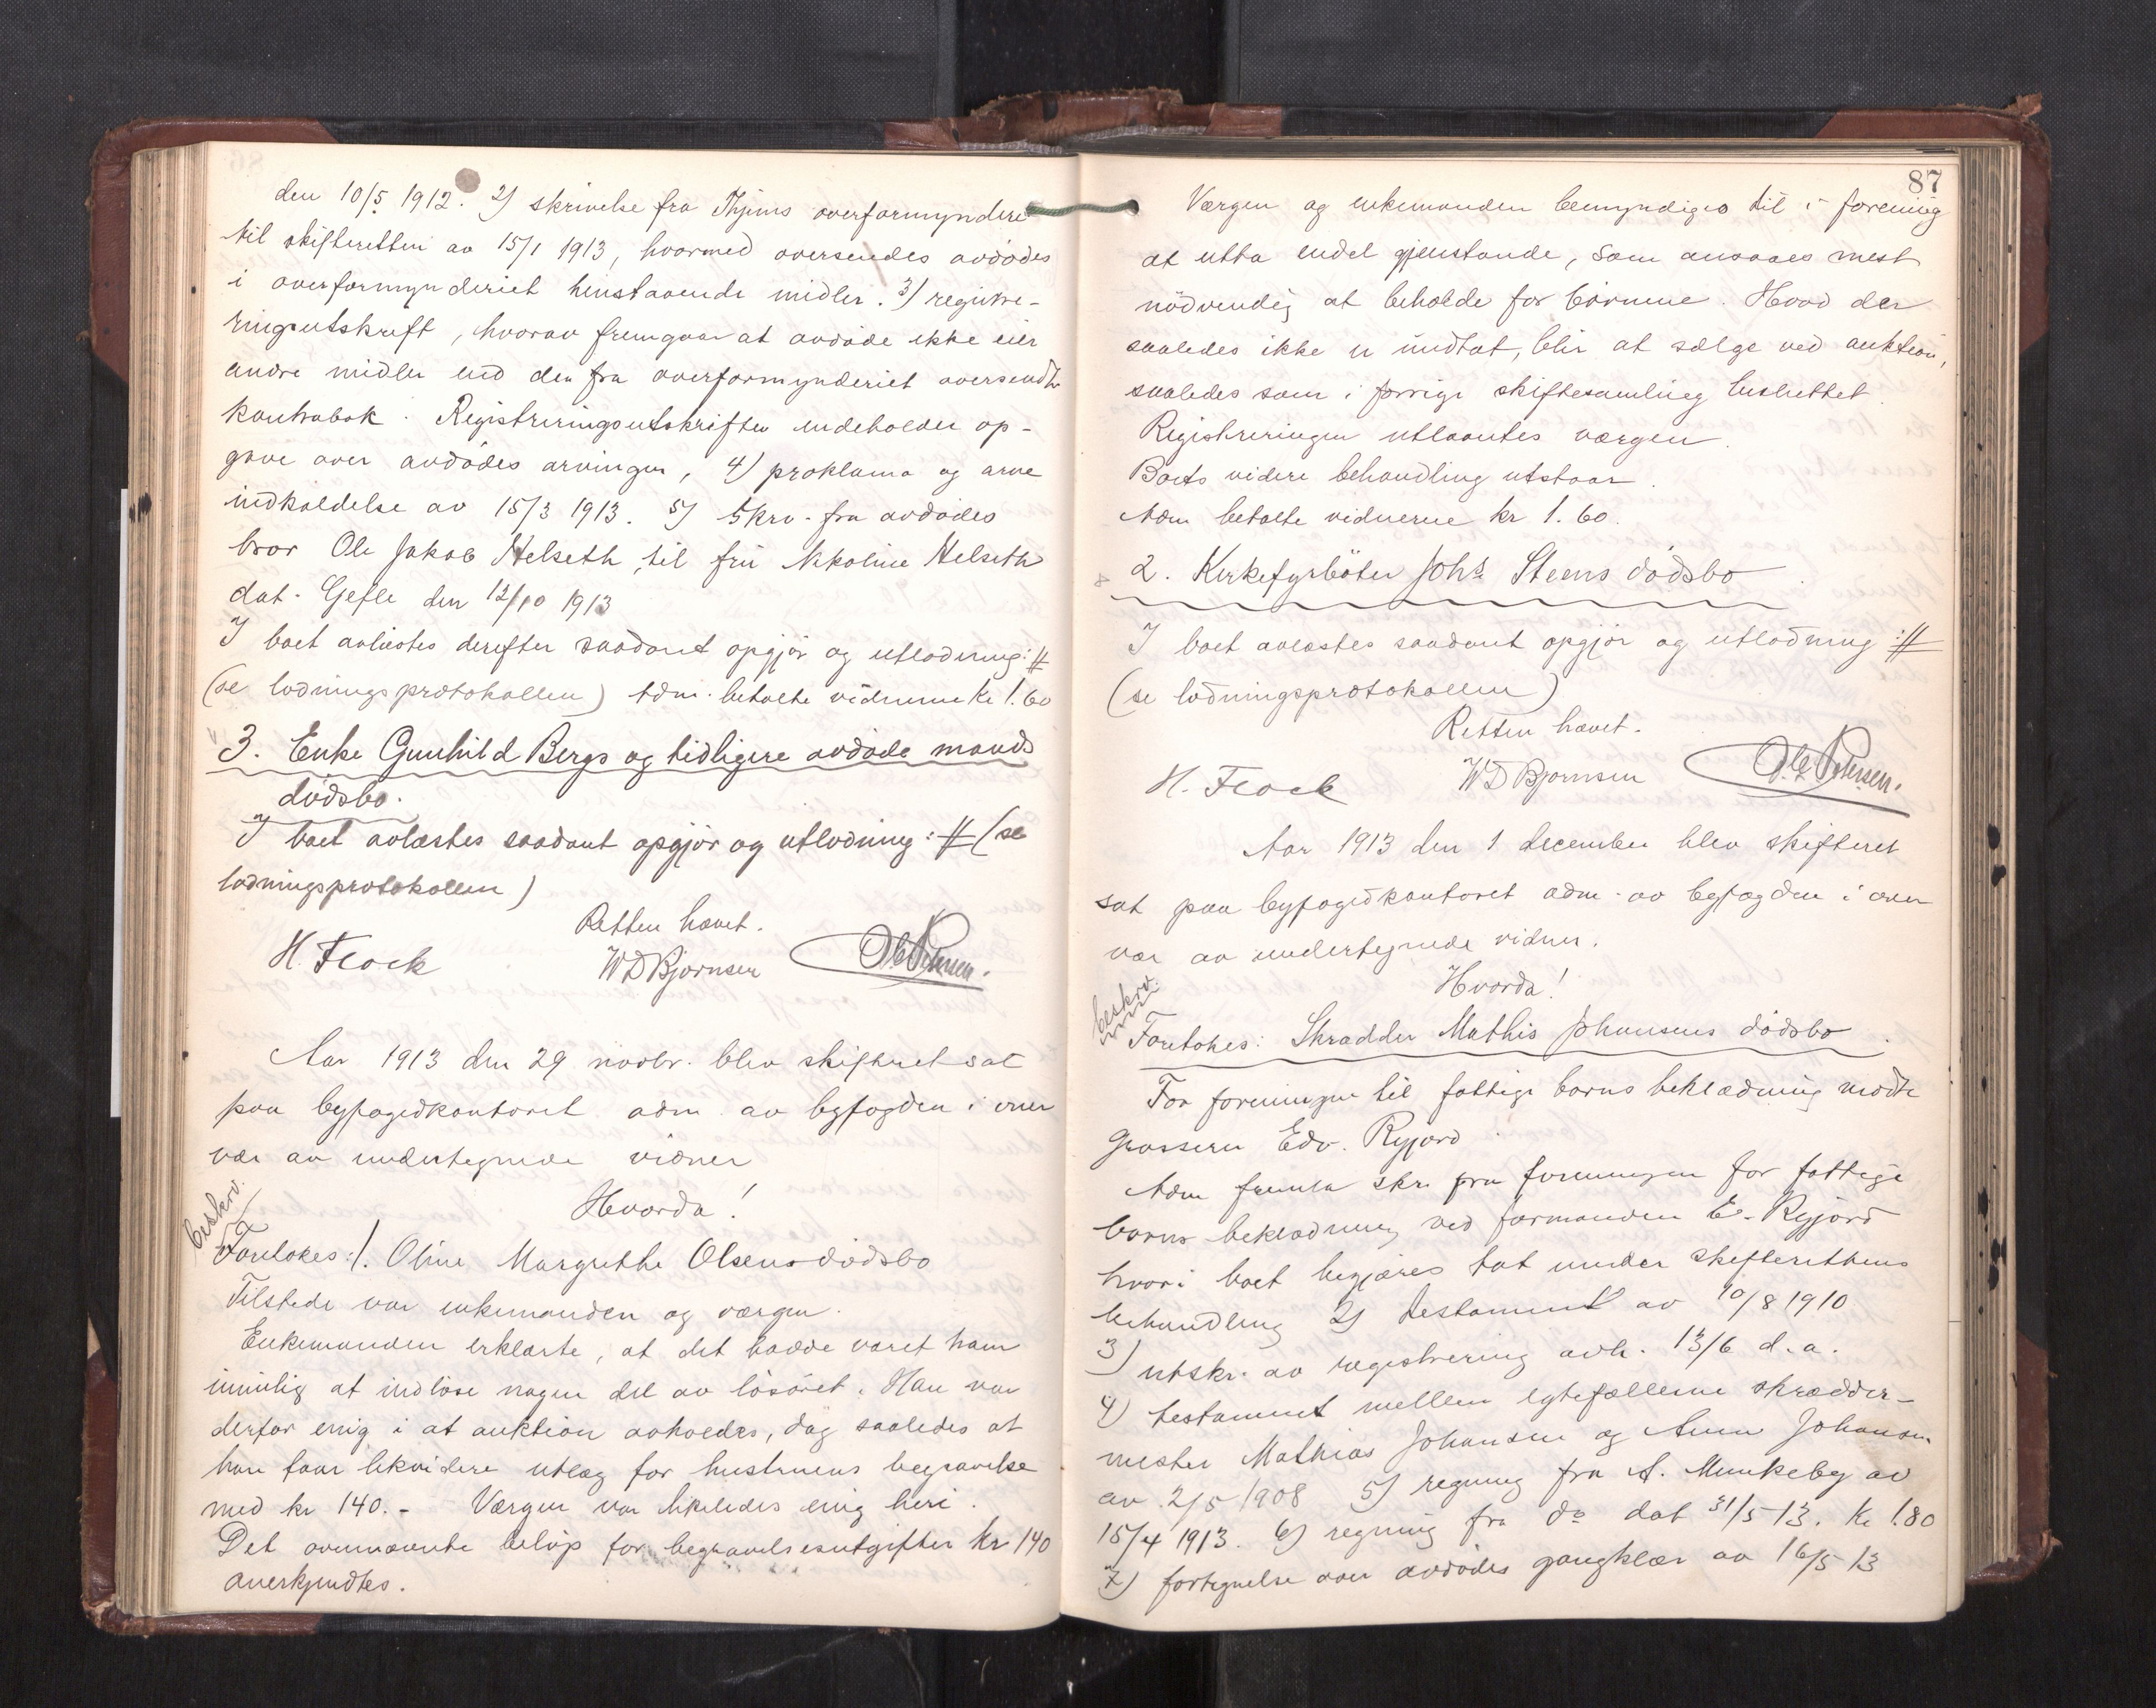 den 10/5 1912. 2) skrivelse fra Thjems overformynderi
til skifteretten av 15/1 1913, hvormed oversendes avdödes
i overformynderiet henstaaende midler. 3) registre-
ringsutskrift, hvorav fremgaar at avdöde ikke eier
andre midler end den fra overformynderiet oversendte
kontrabok. Registreringsutskriften indeholder op-
gave over avdödes arvinger, 4) proklama og arve
indkaldelse av 15/3 1913. 5) Skrv. fra avdödes
bror Ole Jakob Helseth til fru Nikoline Helseth
dat. Gefle den 12/10 1913
I boet avlæstes derefter saadant opgjör og utlodning: #
(se lodningsprotokollen) Adm. betalte vidnerne Kr 1.60
3. Enke Gunhild Bergs og tidligere avdöde mands
dödsbo.
I boet avlæstes saadant opgjör og utlodning: # (se
lodningsprotokollen)
Retten hævet.
H. Flock WD Bjørnsen Ole Petersen.
Aar 1913 den 29 novbr. blev skifteret sat
paa byfogedkontoret adm. av byfogden i over
vær av undertegnede vidner
Hvorda!
beskrv.
Foretokes: 1. Oline Margrethe Olsens dödsbo
Tilstede var enkemanden og værgen.
Enkemanden erklærte, at det hadde været ham
umulig at indlöse nogen del av lösöret. Han var
derfor enig i at auktion avholdes, dog saaledes at
han faar likvidere utlæg for hustruens begravelse
med kr 140.- Værgen var likeledes enig heri.
Det ovennævnte belöp for begravelsesutgifter kr 140
anerkjendtes.
87
Værgen og enkemanden bemyndiges til i forening
at utta endel gjenstande, som ansaaes mest
nödvendig at beholde for börnene. Hvad der
saaledes ikke er undtat, blir at sælge ved auktion,
saaledes som i forrige skiftesamling besluttet.
Registreringen utlaantes værgen.
Boets videre behandling utstaar.
Adm betalte vidnerne kr 1.60.
2. Kirkefyrböter Johs Steens dödsbo.
I boet avlæstes saadant opgjör og utlodning: #
(se lodningsprotokollen)
Retten hævet.
H. Flock WD Bjørnsen Ole Petersen.
Aar 1913 den 1 december blev skifteret
sat paa byfogedkontoret adm. av byfogden i over
vær av undertegnede vidner.
Hvorda!
beskrv.
Foretokes: Skrædder Mathis Johansens dödsbo.
For foreningen til fattige barns beklædning mödte
grosserer Edv. Ryjord.
Adm fremla skr. fra foreningen for fattige
barns beklædning ved formanden E. Ryjord
hvori boet begjæres tat under skifterettens
behandling 2) testament av 10/8 1910
3) utskr. av registrering avh. 13/6 d.a.
4) testament mellem egtefællerne skrædder-
mester Mathias Johansen og Anna Johansen
av 2/5 1908 5) regning fra A. Munkeby av
15/4 1913. 6) regning fra do dat 31/5 13. Kr 1.80
7) fortegnelse over avdödes gangklær av 16/5 13